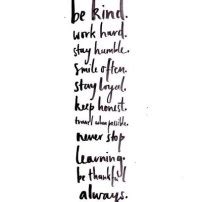 be kind.
work hard.
stay humble.
smile often.
stay loyal.
keep honest.
travel when possible.
never stop
learning.
be thankful
always.